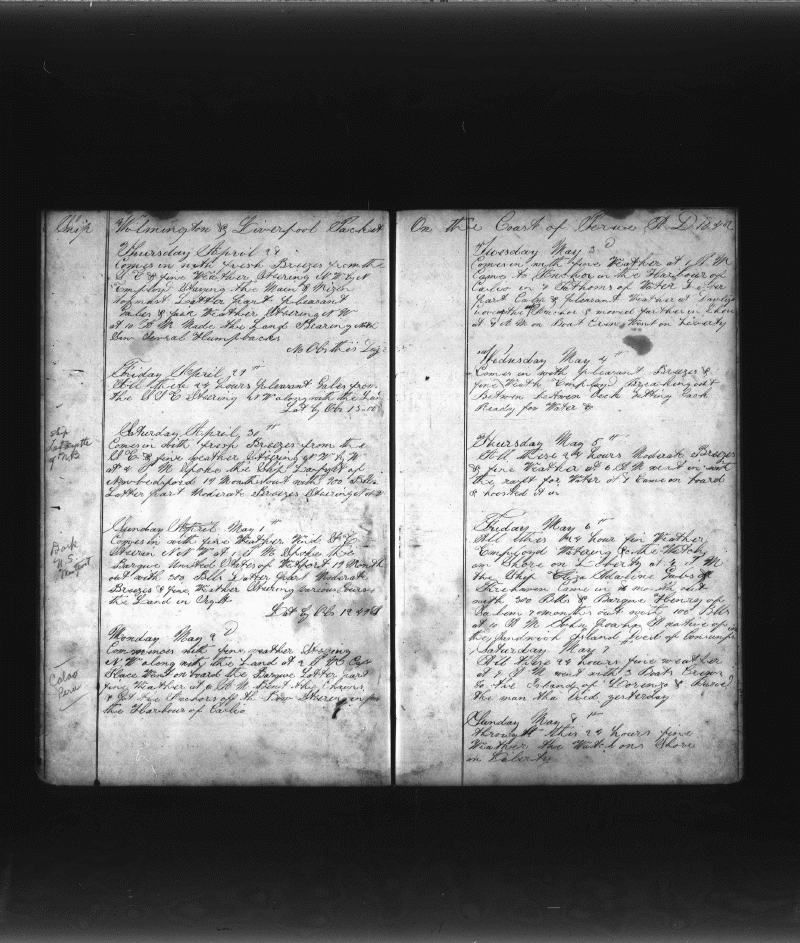 Ship Wilmington & Liverpool Packet
Thursday April 28
Comes in with fresh Breezes from the
S E & fine Weather Steering N W by N
Employd Staying the Main & Mizen
topmast Latter part pleasant
Gales & fine Weather Steering N W
at 10 A M Made the Land Bearing
Saw Several Humpbacks
No Obs this Day
Friday April 29th
All these 24 hours pleasant Gales from
the S S E Steering N W along with the Land
Lat by Obs
Saturday April 30th
Comes in with fresh Breezes from the
S E & fine weather Steering N W by W
at 4 P M Spoke the Ship Lafayette of
Newbedford 19 Months out with 700 Bbls
Latter part Moderate Breezes Steering N W
ship
Lafayette
of NB
Sunday April May 1th
Comes in with fine Weather Wind S E
Steering N N W at 1 P M Spoke the
Barque United States of Westport 19 Month
out with 350 Bbls Latter part Moderate
Breezes & fine Weather Steering various Courses
the Land in Sight
Lat by Obs
Bark
U.S.
Westport
Monday May 2d
Commences with fine weather Steering
N W along with the Land at 2 P M Capt
Place Went on board the Barque Latter part
fine Weather at 6 A M bent the Chains
& Got the Anchors off the Bow Steering in for
the Harbour of Calao
Calao
Peru
On the Coast of Peruve A D 1842
Tuesday May 3d
Comes in with fine Weather at P M
Came to Anchor in the Harbour of
Calao in 7 Fathoms of Water Latter
part Calm & pleasant Weather at Daylight
hove up the Anchor & moved farther in Shore
at 9 A M on Boat Crew Went on Liberty
Wednsday May 4th
Comes in with pleasant Breezes &
fine Weath Employd breaking out
Between between deck Getting Cask
Ready for Water &
Thursday May 5th
All these 24 hours Moderate Breezes
& fine Weather at 6 A M went in with
the raft for Water at Came on board
& hoisted it in
Friday May 6th
All this 24 hour fin Weather
Employd Watering & the Watch
on Shore on Liberty at P M
the Ship Eliza Adams Gibbs of
Fairhaven Came in month out
with 350 Bbls & Barque Henry of
Salem 7 months out with 100 Bbls
at 10 P M John Joahn A native of
the Sandwich Island Died of Consump
Saturday May 7
All these 24 hours fine weather
at P M went with 3 Boats Crews
to the Island of Lorenzo & Buried
the man tha Died yesterday
Sunday May 8th
through this 24 hours fine
Weather the Watch on Shore
on Liberty